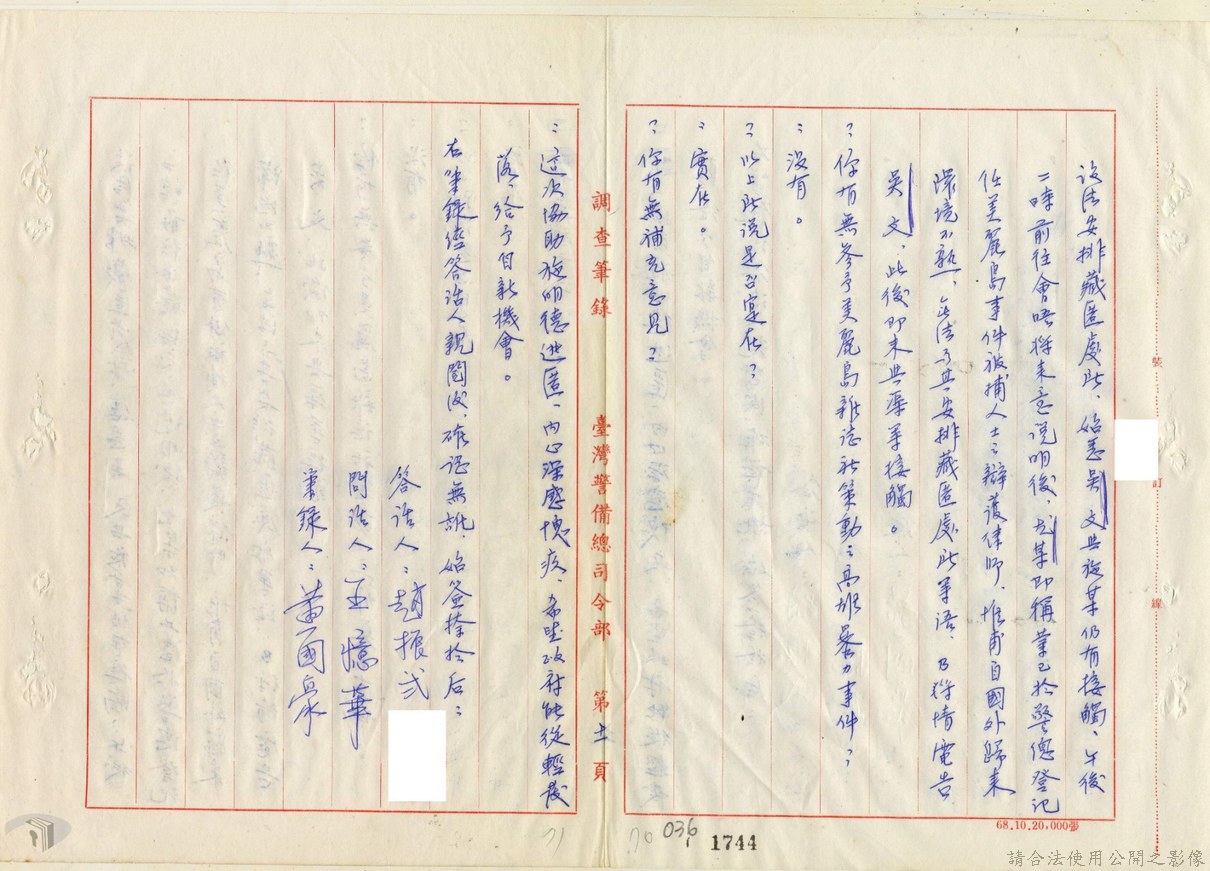 設法安排藏匿處所、始悉吳　文與施某仍有接觸、午後
二時前往會晤將來意說明後、尤某即稱業已於警總登記
任美麗島事件被捕人士之辯護律師、惟甫自國外歸來
環境不熟、無法予其安排藏匿處所等語、我將情電告
吳　文、此後即未與渠等接觸。
？你有無參予美麗島雜誌社策動之高雄暴力事件？
：沒有。
？以上所說是否實在？
：實在。
？你有無補充意見？
調查筆錄　臺灣警備總司令部　第十一頁
：這次協助施明德逃匿、內心深感愧疚、希望政府能從輕發
落、給予自新機會。
右筆錄經答話人親閱後、確認無訛、始簽捺於后：
答話人：趙振弍
問話人：王憶華
筆錄人：黃國豪
裝
訂
線
68.10.20,000張
71
70
036
1744
請合法使用公開之影像